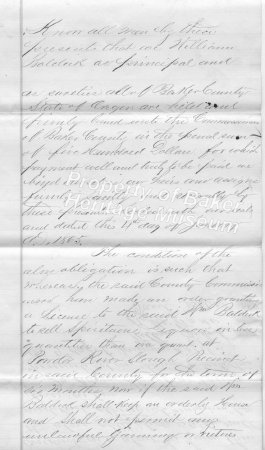 Know all men by these
presents that we William
Baldock as principal and
as sureties all of Baker County
State of Oregon are held and
firmly bound unto the Commissioners
of Baker County in the penal sum
of five Hundred Dollars for which
payment well and truly to be paid we
bind our and assigns
jointly and severally by
these presents Sealed with our seals
and dated this 4 day of
1865.
The condition of the
above obligation is such that
whereas the said County Commissi
oners have made an order granting
a License to the said Wm Baldock
to sell Spirituous Liquors in less
quantities than one quart at
Powder River Slough Precinct
in said County for the term of
six months now if the said Wm
Baldock shall keep an orderly House
and shall not permit any
unlawful Gaming or
Property of Baker
Heritage Museum